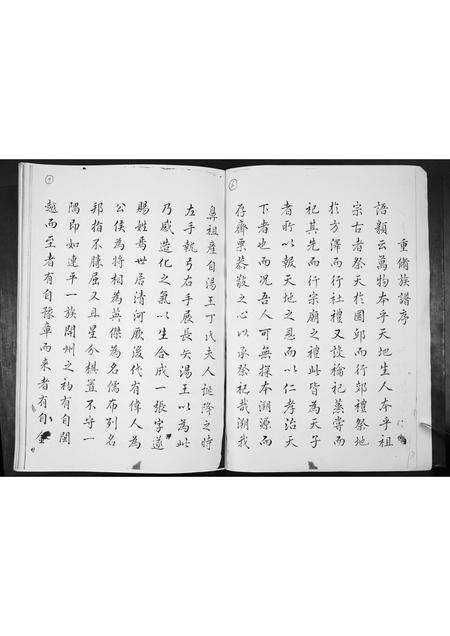 重脩族譜序
語類云萬物本乎天地生人本乎祖
宗古者祭天於圜邱而行郊禮祭地
於方澤而行社禮又設禴祀蒸嘗而
祀其先而行宗廟之禮此皆為天子
者所以報天地之恩而以仁孝治天
下者也而况吾人可無探本溯源而
存齋栗恭敬之心以承祭祀哉溯我
鼻祖產自湯王丁氏夫人誕降之時
左手執弓右手展長矢湯王以為此
乃感造化之氣以生合成一張字遂
賜姓焉世居清河厥後代有偉人為
公侯為將相為英傑為名儒布列名
邦指不勝屈又且星分棋置不守一
隅即如連平一族開州之初有自閩
越而至者有自豫章而來者有自金